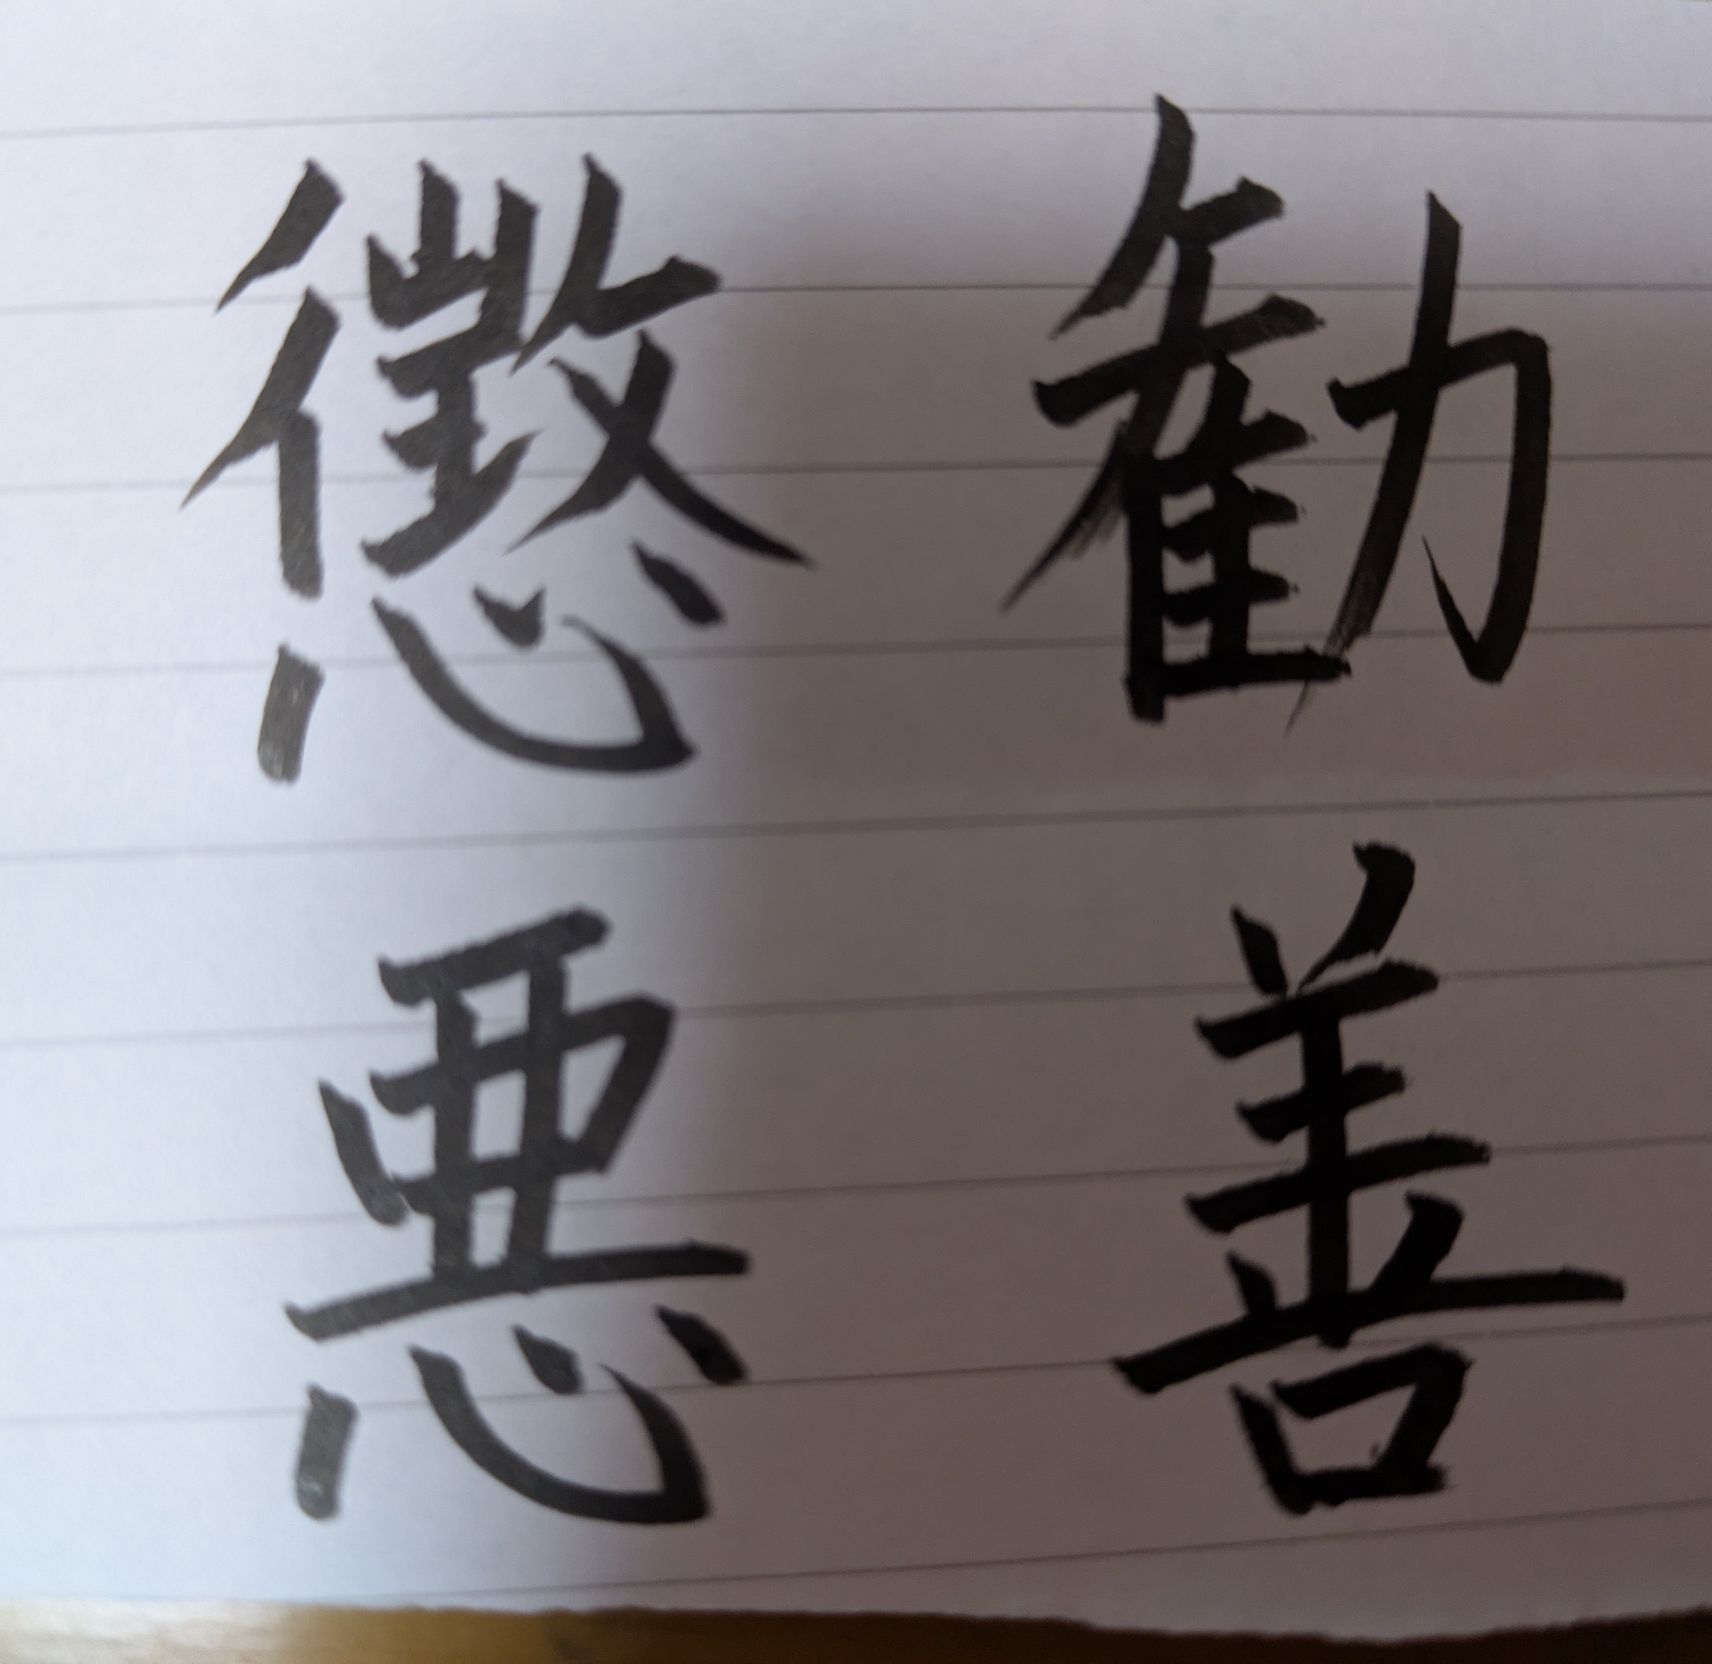 勧善
懲悪